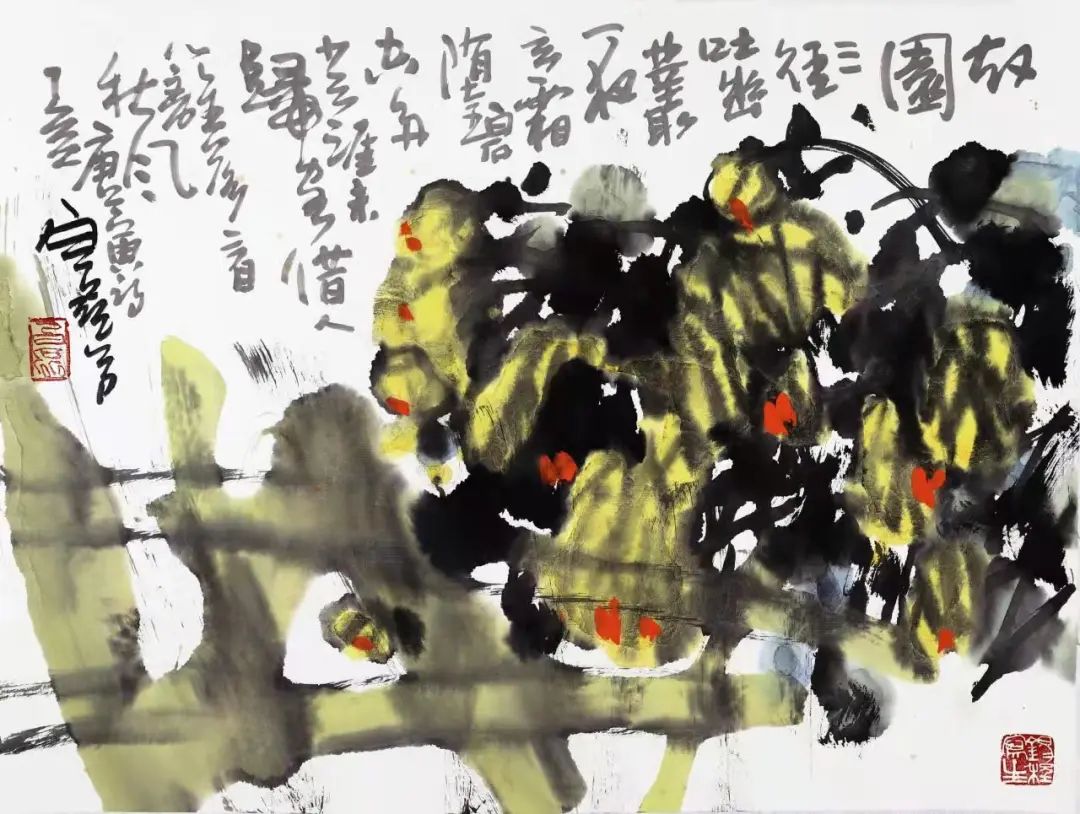 故
園
三徑
吐幽
叢
一夜
玄霜
墮碧
空多
少天涯未
歸客借人
籬落看
秋風
唐寅詩